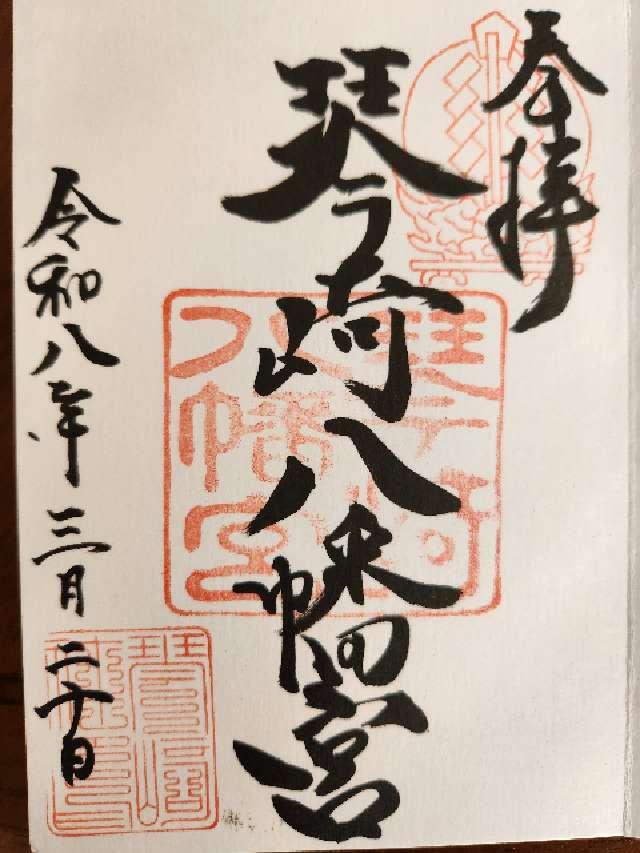 奉拝
琴崎八幡宮
琴崎
八幡宮
令和八年三月二十日